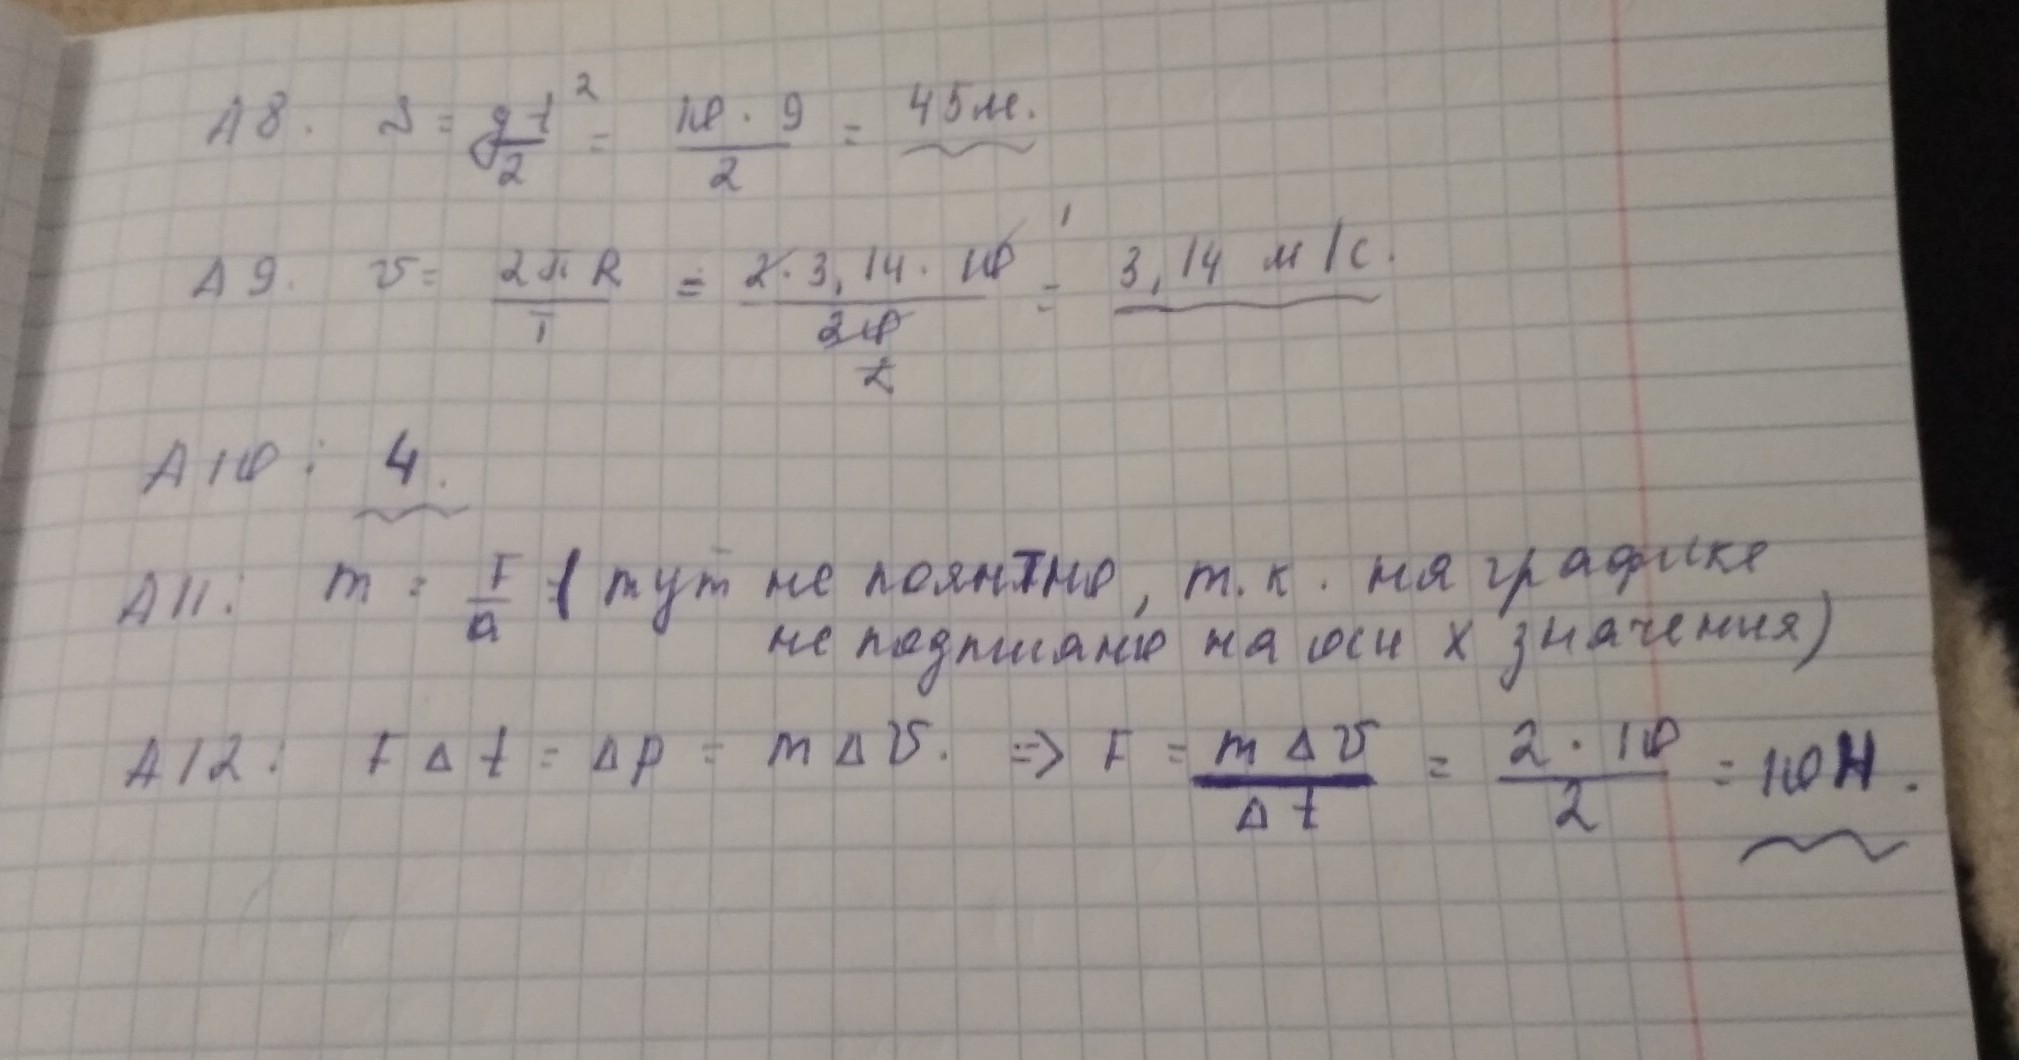 А8. S = gt²/2 = 10 · 9/2 = 45 м.
А9. v = 2πR/T = 2 · 3,14 · 10/20 = 3,14 м/с.
А10: 4.
А11: m = F/a (тут не поянтно, т.к. на графике
не подписано на оси х значения)
А12: FΔt = Δp = mΔv. => F = mΔv/Δt = 2 · 10/2 = 10Н.